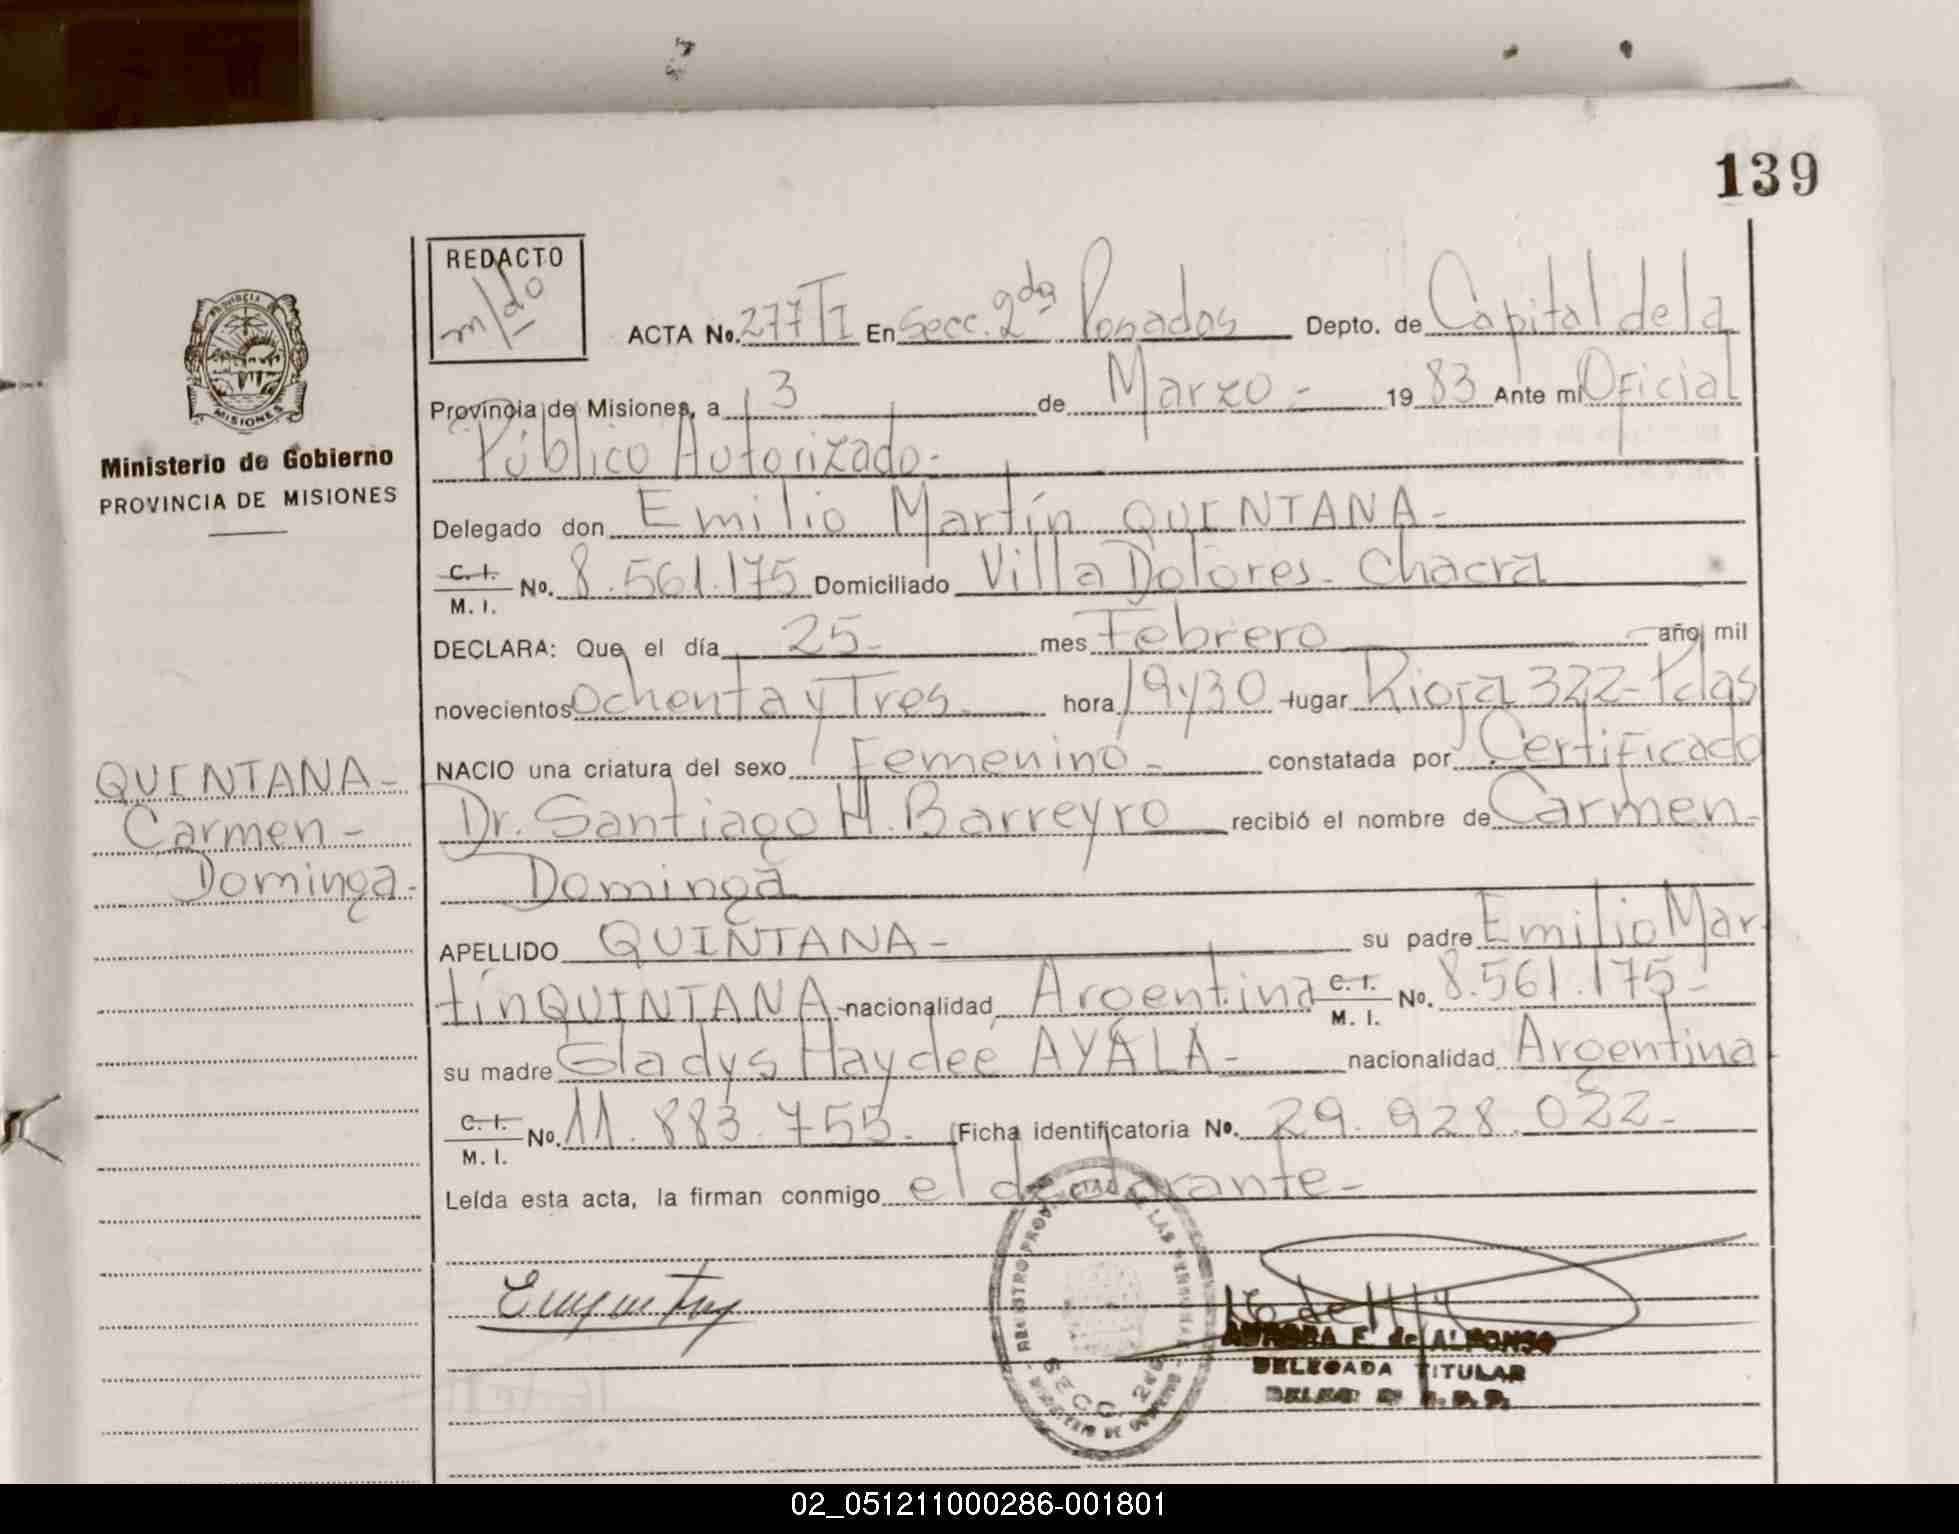 139
REDACTO
m/do
ACTA No. 277/T I En Secc. 2da Posadas Depto. de Capital de la
Provincia de Misiones, a 3 de Marzo - 1983 Ante mi Oficial
Público Autorizado-
Delegado don Emilio Martín QUINTANA-
C. I. M. I. No. 8.561.175 Domiciliado Villa Dolores - Chacra
DECLARA: Que el día 25- mes Febrero año mil
novecientos Ochenta y Tres- hora 19y30 lugar Rioja 322-Pdas
NACIO una criatura del sexo Femenino - constatada por Certificado
Dr. Santiago H. Barreyro recibió el nombre de Carmen-
Dominga
APELLIDO QUINTANA- su padre Emilio Mar
tín QUINTANA- nacionalidad Argentina C. I. M. I. No. 8.561.175-
su madre Gladys Haydee AYALA- nacionalidad Argentina
C. I. M. I. No. 11.883.755- Ficha identificatoria No. 29.928.022-
Leída esta acta, la firman conmigo el declarante-
Ministerio de Gobierno
PROVINCIA DE MISIONES
QUINTANA-
Carmen -
Dominga-
PROVINCIA DE
MISIONES
SECC. 2da
AURORA F. de ALFONSO
DELEGADA TITULAR
02_051211000286-001801